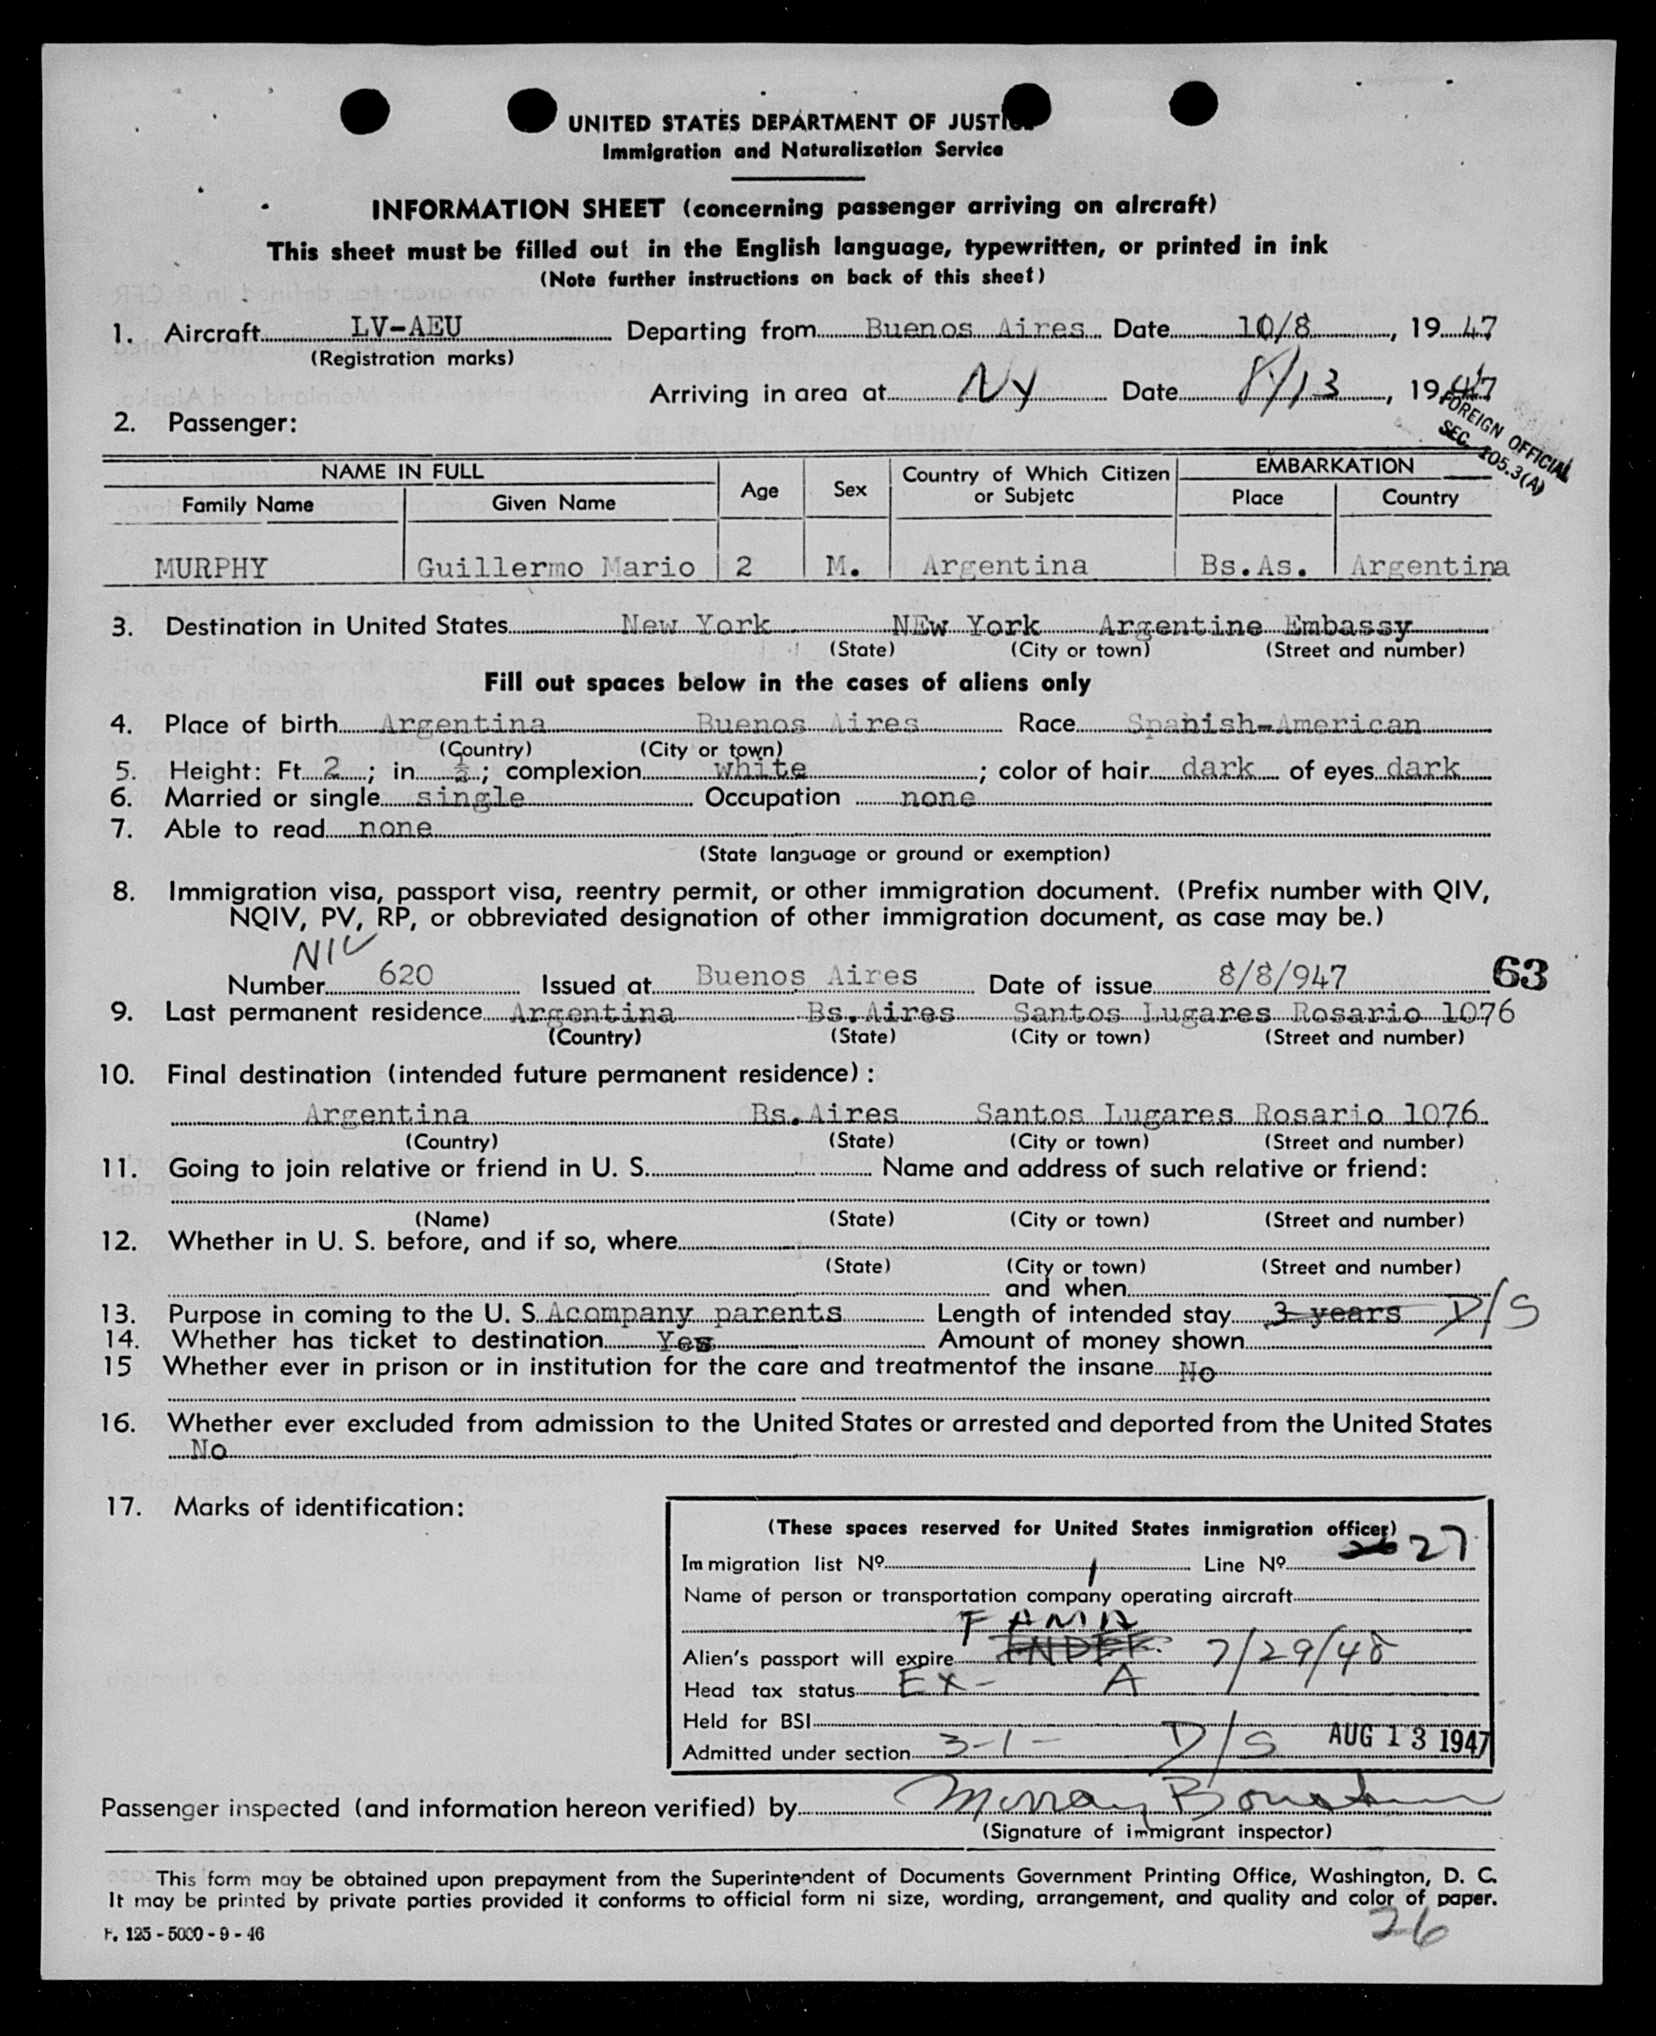 UNITED STATES DEPARTMENT OF JUSTICE
Immigration and Naturalization Service
INFORMATION SHEET (concerning passenger arriving on aircraft)
This sheet must be filled out in the English language, typewritten, or printed in ink
(Note further instructions on back of this sheet)
1. Aircraft LV-AEU Departing from Buenos Aires Date 10/8, 1947
(Registration marks)
Arriving in area at NY Date 8/13, 1947
FOREIGN OFFICIAL
SEC. 105.3(A)
2. Passenger:
NAME IN FULL Age Sex Country of Which Citizen or Subjetc EMBARKATION
Family Name Given Name Place Country
MURPHY Guillermo Mario 2 M. Argentina Bs.As. Argentina
3. Destination in United States New York NEw York Argentine Embassy
(State) (City or town) (Street and number)
Fill out spaces below in the cases of aliens only
4. Place of birth Argentina Buenos Aires Race Spanish-American
(Country) (City or town)
5. Height: Ft. 2; in ½; complexion white; color of hair dark of eyes dark
6. Married or single single Occupation none
7. Able to read none
(State language or ground or exemption)
8. Immigration visa, passport visa, reentry permit, or other immigration document. (Prefix number with QIV,
NQIV, PV, RP, or obbreviated designation of other immigration document, as case may be.)
NIV
Number 620 Issued at Buenos Aires Date of issue 8/8/947 63
9. Last permanent residence Argentina Bs.Aires Santos Lugares Rosario 1076
(Country) (State) (City or town) (Street and number)
10. Final destination (intended future permanent residence):
Argentina Bs.Aires Santos Lugares Rosario 1076
(Country) (State) (City or town) (Street and number)
11. Going to join relative or friend in U. S. Name and address of such relative or friend:
(Name) (State) (City or town) (Street and number)
12. Whether in U. S. before, and if so, where
(State) (City or town) (Street and number)
and when
13. Purpose in coming to the U. S. Acompany parents Length of intended stay 3 years D/S
14. Whether has ticket to destination Yes Amount of money shown
15 Whether ever in prison or in institution for the care and treatmentof the insane No
16. Whether ever excluded from admission to the United States or arrested and deported from the United States
No
17. Marks of identification:
(These spaces reserved for United States inmigration officer)
Immigration list Nº 1 Line Nº 26 27
Name of person or transportation company operating aircraft
FAMA
Alien's passport will expire INDEF. 7/29/48
Head tax status EX- A
Held for BSI
Admitted under section 3-1- D/S AUG 13 1947
Passenger inspected (and information hereon verified) by Murray
(Signature of immigrant inspector)
This form may be obtained upon prepayment from the Superintendent of Documents Government Printing Office, Washington, D. C.
It may be printed by private parties provided it conforms to official form ni size, wording, arrangement, and quality and color of paper.
F. 125 - 5000 - 9 - 46
26